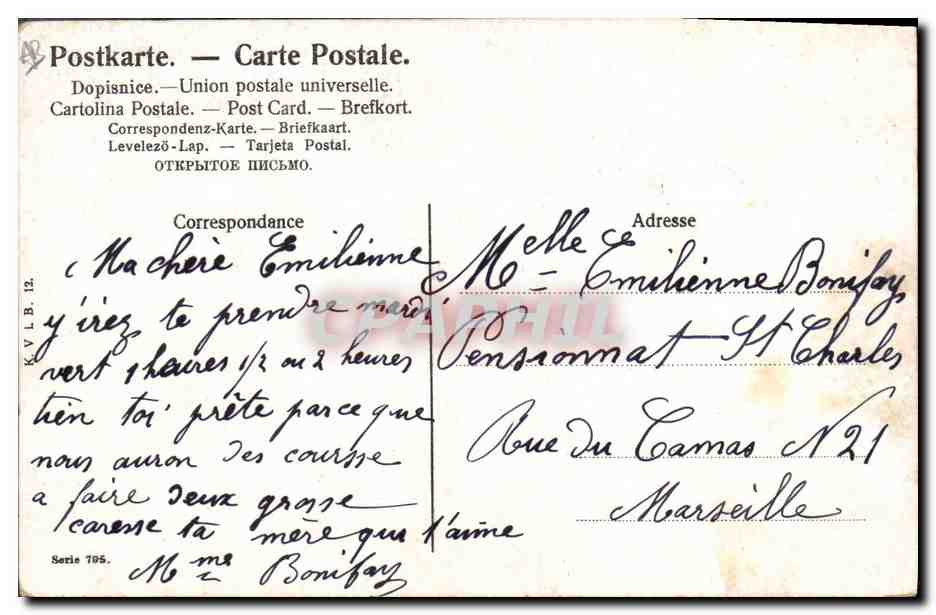 Postkarte. — Carte Postale.
Dopisnice.—Union postale universelle.
Cartolina Postale. — Post Card. — Brefkort.
Correspondenz-Karte. — Briefkaart.
Levelező-Lap. — Tarjeta Postal.
ОТКРЫТОЕ ПИСЬМО.
Correspondance
Ma chère Emilienne
y'irez te prendre mardi
vert 1 haures 1/2 ou 2 heures
tien toi prête parce que
nous auron des coursse
a faire deux grosse
caresse ta mère qui t'aime
Mme Bonifay
Adresse
Melle Emilienne Bonifay
Pensionnat St Charles
Rue du Camas N 21
Marseille
K. V i. B. 12.
Serie 795.